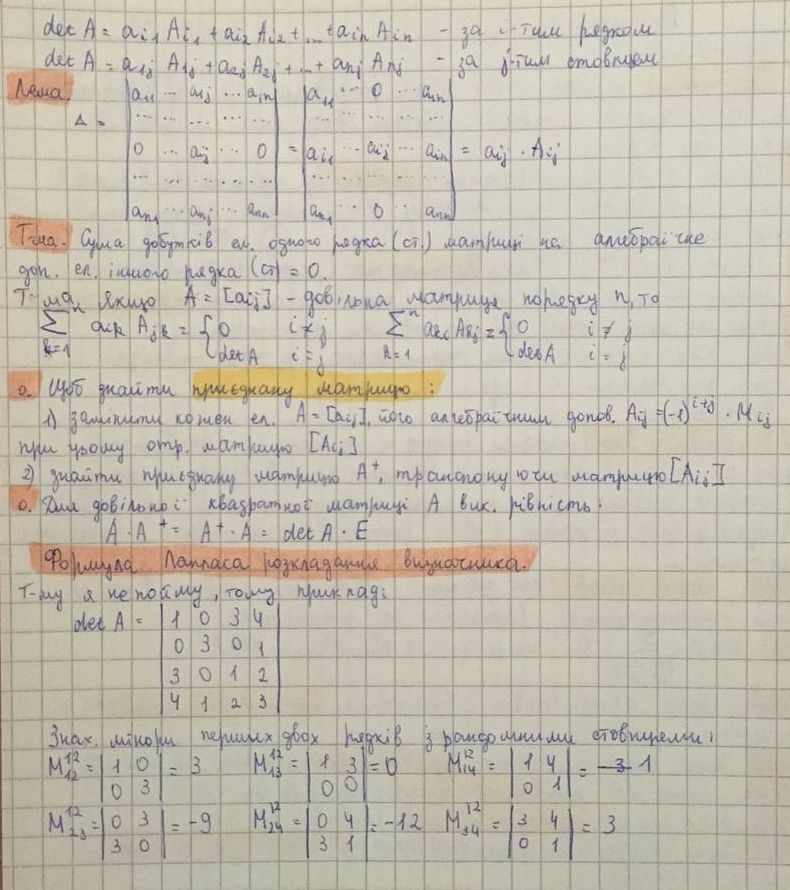 det A = ai1 Ai1 + ai2 Ai2 + ... + ain Ain - за i-тим рядком
det A = a1j A1j + a2j A2j + ... + anj Anj - за j-тим стовпцем
Лема.
Δ = | a11 ... a1j ... a1n | = | a11 ... 0 ... a1n | = aij · Aij
| ... ... ... ... ... | | ... ... ... ... ... |
| 0 ... aij ... 0 | | ai1 ... aij ... ain |
| ... ... ... ... ... | | ... ... ... ... ... |
| an1 ... anj ... ann | | an1 ... 0 ... ann |
Т-ма. Сума добутків ел. одного рядка (ст.) матриці на алгебраїчне
доп. ел. іншого рядка (ст) = 0.
Т-ма. Якщо A = [aij] - довільна матриця порядку n, то
n∑k=1 aik Ajk = { 0 i ≠ j n∑k=1 aki Akj = { 0 i ≠ j
det A i = j det A i = j
О. Щоб знайти приєднану матрицю:
1) замінити кожен ел. A = [aij], його алгебраїчним допов. Aij = (-1)^i+j · Mij
при цьому отр. матрицю [Aij]
2) знайти приєднану матрицю A⁺, транспонуючи матрицю [Aij]
О. Для довільної квадратної матриці A вик. рівність:
A · A⁺ = A⁺ · A = det A · E
Формула Лапласа розкладання визначника.
Т-му я не пойму, тому приклад:
det A = | 1 0 3 4 |
| 0 3 0 1 |
| 3 0 1 2 |
| 4 1 2 3 |
Знах. мінори перших двох рядків з рандомними стовпцями:
M12 12 = | 1 0 | = 3 M12 13 = | 1 3 | = 0 M12 14 = | 1 4 | = -3 1
| 0 3 | | 0 0 | | 0 1 |
M12 23 = | 0 3 | = -9 M12 24 = | 0 4 | = -12 M12 34 = | 3 4 | = 3
| 3 0 | | 3 1 | | 0 1 |